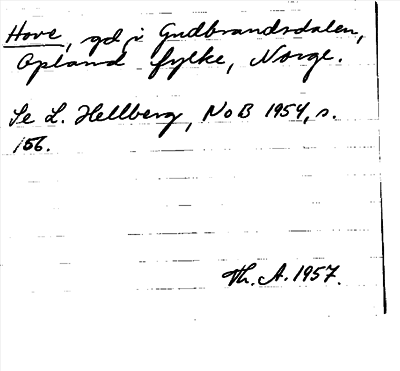 Hove, gd i Gudbrandsdalen,
Opland fylke, Norge.
Se L. Hellberg, NoB 1954, s.
156.
Th. A. 1957.